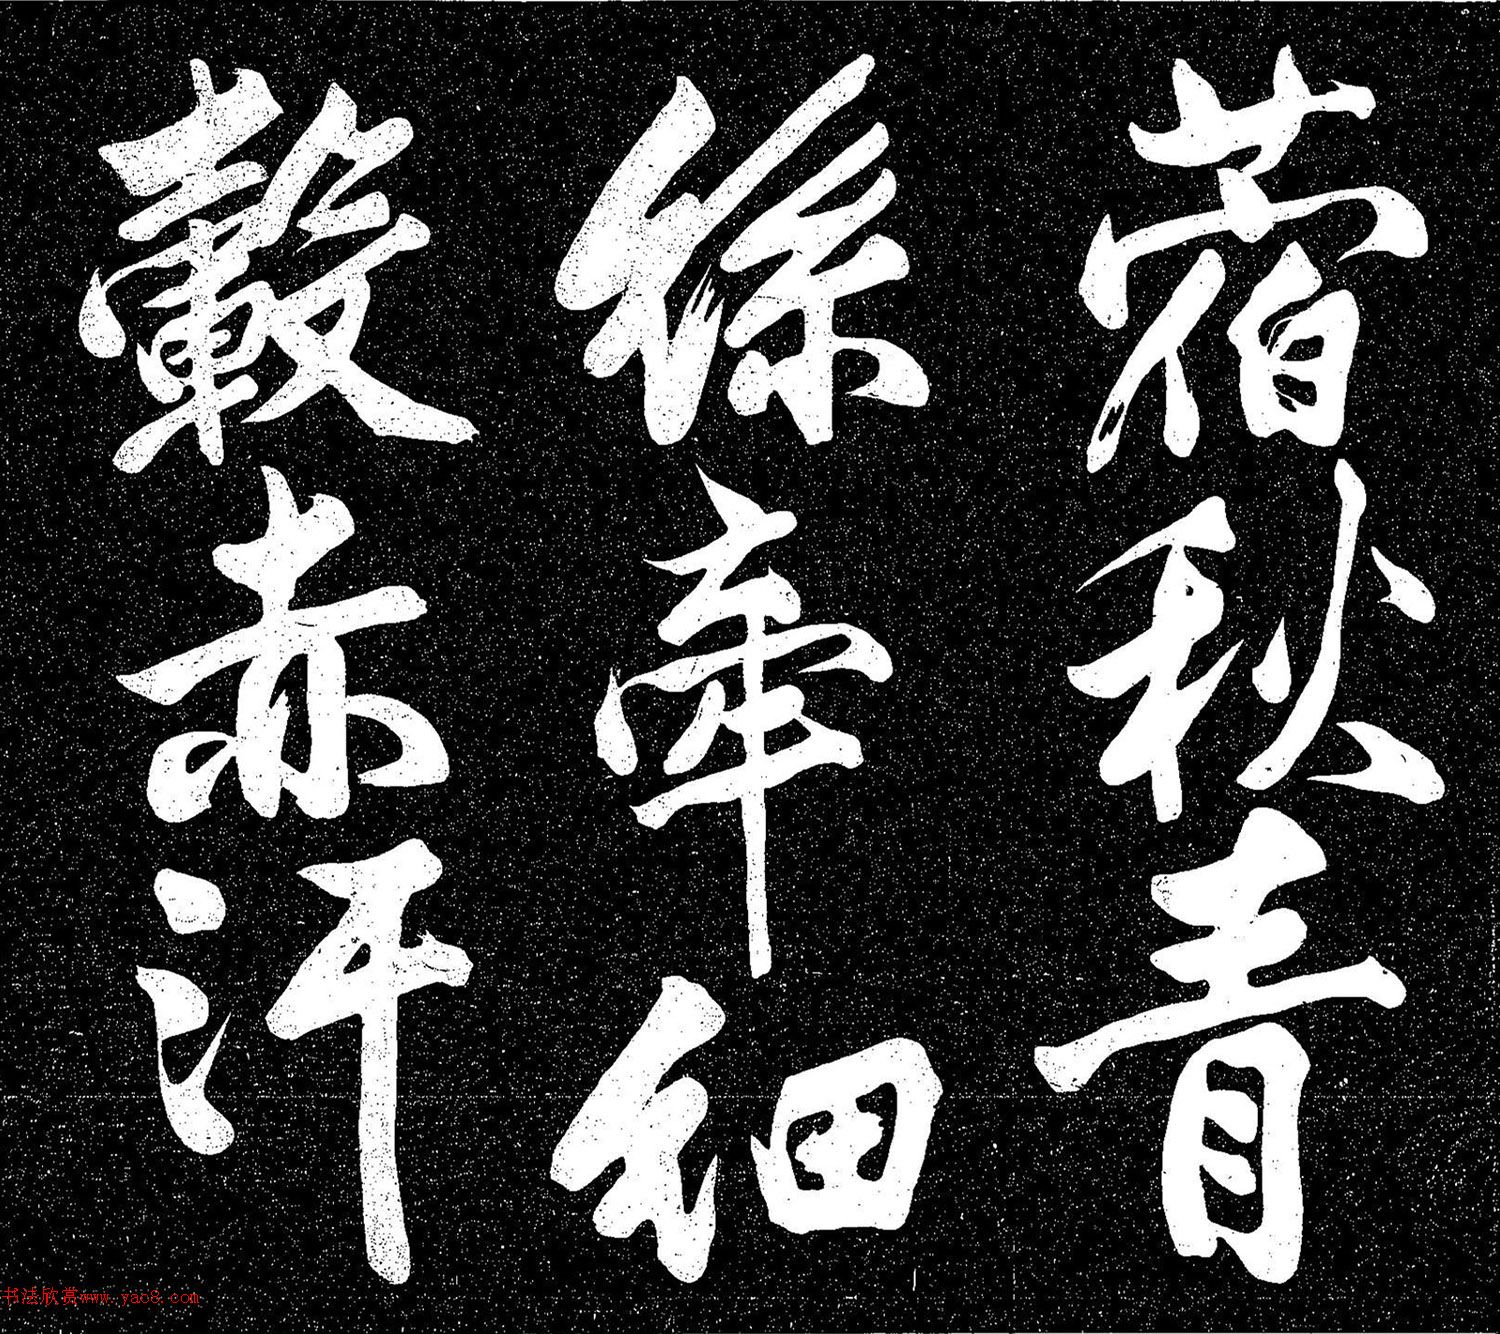 蓿秋青
絲牽細
轂赤汗
书法欣赏www.yac8.com